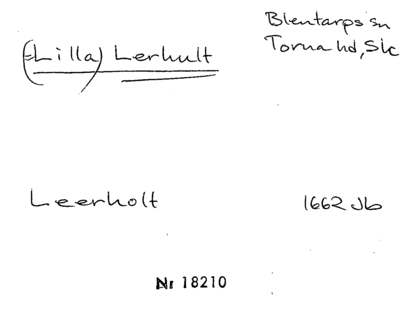 Blentarps sn
(=Lilla) Lerhult
Torna hd, Sk
Leerholt 1662 Jb
Nr 18210